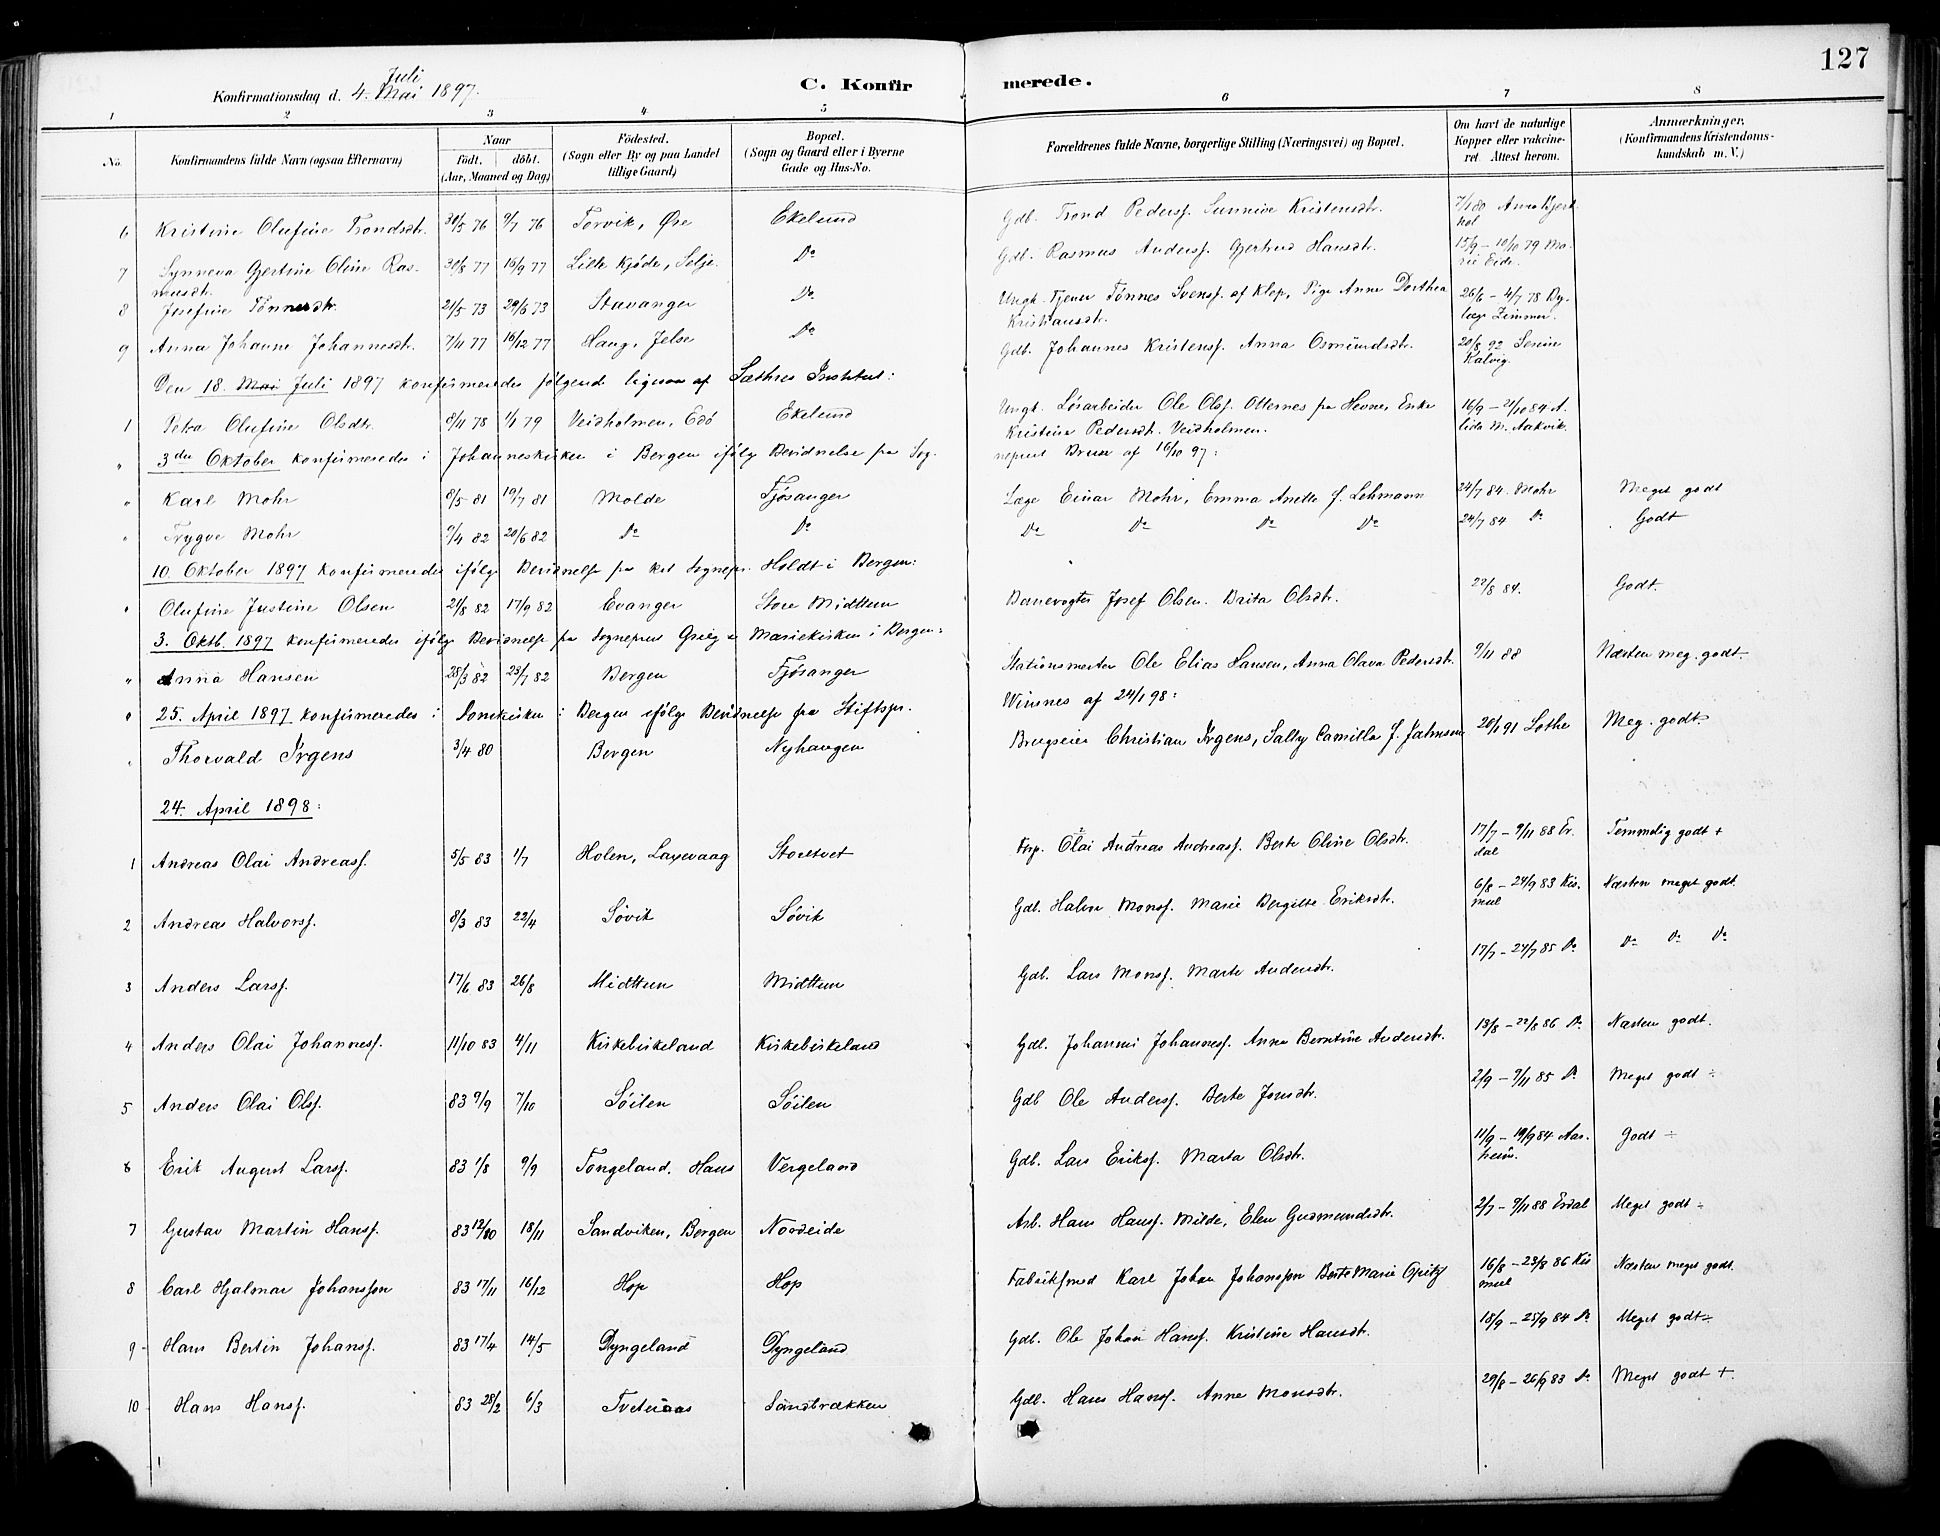 127
Juli
Konfirmationsdag d. 4. Mai 1897.
C. Konfirmerede.
1 2 3 4 5 6 7 8
No. Konfirmandens fulde Navn (ogsaa Efternavn) Naar født. døbt. (Aar, Maaned og Dag) Fødested. (Sogn eller By og paa Landet tillige Gaard) Bopæl. (Sogn og Gaard eller i Byerne Gade og Hus-No. Forældrenes fulde Navne, borgerlige Stilling (Næringsvei) og Bopæl. Om havt de naturlige Kopper eller vakcineret. Attest herom. Anmærkninger. (Konfirmandens Kristendomskundskab m. V.)
6 Kristine Olufine Trondsdtr. 30/5 76 9/7 76 Torvik, Øre Ekelund Gdb. Trond Peders. Sunnive Kristensdtr. 7/1 80
7 Synneva Gjertine Oline Rasmusdtr. 30/8 77 16/9 77 Lille Kjøde, Selje Do Gdb. Rasmus Anders. Gjertrud Hansdtr. 15/9 - 10/10 79 Marie Eide.
8 Josefine Tønnesdtr. 21/5 73 29/6 73 Stavanger Do Ungk. Tjener Tønnes Svens. af Klep, Pige Anne Dorthea Kristiansdtr. 26/6 - 4/7 78 Bylæge Zimmer.
9 Anna Johanne Johannesdtr. 7/11 77 16/12 77 Haug, Jelse Do Gdb. Johannes Kristens. Anna Osmundsdtr. 20/8 92 Serine Kalvig.
Den 18. Mai Juli 1897 konfirmeredes følgende ligesaa af Sæthres Institut:
1 Petra Olufine Olsdtr. 8/11 78 1/1 79 Veidholmen, Edø Ekelund Ungk. Løsarbeider Ole Ols. Otternes fra Hevne, Enke Kristine Pedersdt. Veidholmen. 16/9 - 21/10 84 Alida M. Aakvik.
" 3die Oktober konfirmeredes i Johanneskirken i Bergen ifølge Bevidnelse fra Sogneprest Bruun af 16/10 97:
" Karl Mohr 8/5 81 19/7 81 Molde Fjøsanger Læge Einar Mohr, Emma Anette f. Lehmann 24/7 84. Mohr Meget godt
" Trygve Mohr 9/4 82 20/6 82 Do Do Do Do Do Do 24/7 84 Do Godt
10. Oktober 1897 konfirmeredes ifølge Bevidnelse fra Sognepr. Holdt i Bergen:
" Olufine Justine Olsen 21/8 82 17/9 82 Evanger Store Midttun Banevogter Josef Olsen. Brita Olsdtr. 22/8 84. Godt.
3. Oktb. 1897 konfirmeredes ifølge Bevidnelse fra Sogneprest Grieg i Mariekirken i Bergen:
" Anna Hansen 28/3 82 23/7 82 Bergen Fjøsanger Stationsmester Ole Elias Hansen, Anna Olava Pedersdtr. 9/11 88 Næsten meg. godt.
" 25. April 1897 konfirmeredes i Domkirken i Bergen ifølge Bevidnelse fra Stiftspr. Wisnes af 24/1 98:
Thorvald Irgens 3/4 80 Bergen Nyhaugen Brugseier Christian Irgens, Sally Camilla f. Jahnsen 20/1 91 Lothe Meg. godt.
24. April 1898:
1 Andreas Olai Andreass. 5/5 83 1/7 Holen, Laxevaag Storetvet Fisp. Olai Andreas Andreass. Berte Oline Olsdtr. 17/7 - 9/11 88 Erdal Temmelig godt +
2 Andreas Halvors. 8/3 83 22/4 Søvik Søvik Gdb. Halvor Mons. Marie Bergitte Eriksdtr. 6/8 - 24/9 83 Kismul Næsten meget godt.
3 Anders Larss. 17/6 83 26/8 Midttun Midttun Gdb. Lars Mons. Marte Andersdtr. 17/7 - 24/7 85 Do Do Do Do
4 Anders Olai Johanness. 11/10 83 4/11 Kirkebirkeland Kirkebirkeland Gdb. Johannes Johanness. Anna Berntine Andersdtr. 13/8 - 22/8 86 Do Næsten godt.
5 Anders Olai Ols. 83 9/9 7/10 Søilen Søilen Gdb Ole Anders. Berte Jonsdtr. 2/9 - 9/11 85 Do Meget godt ÷
6 Erik August Larss. 83 1/8 9/9 Tongeland, Haus Vergeland Gdb. Lars Eriks. Marta Olsdtr. 11/9 - 19/9 84 Aarheim. Godt ÷
7 Gustav Martin Hans. 83 12/10 18/11 Sandviken, Bergen Nordeide Arb. Hans Hans. Milde, Elen Gudmundsdtr. 2/7 - 9/11 88 Erdal Meget godt ÷
8 Carl Hjalmar Johansson 83 17/11 16/12 Hop Hop Fabriksmed Karl Johan Johansson Berte Marie Opitz 16/8 - 23/8 86 Kismul Næsten meget godt.
9 Hans Bertin Johans. 83 17/4 14/5 Dyngeland Dyngeland Gdb. Ole Johan Hans. Kristine Hansdtr. 18/9 - 25/9 84 Do Meget godt ÷
10 Hans Hans. 83 28/2 6/3 Tveteraas Sandbrækken Gdb. Hans Hans. Anne Monsdtr. 29/8 - 26/9 83 Do Meget godt +